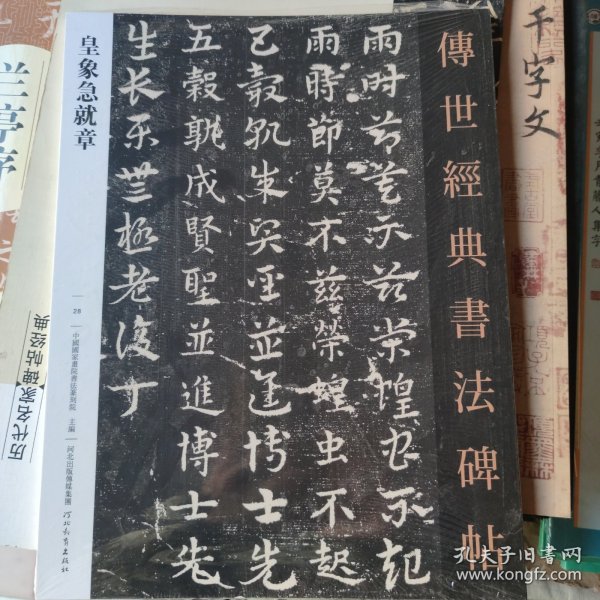 傳世經典書法碑帖
雨时节莫不兹荣蝗虫不起
雨時節莫不茲榮蝗虫不起
五穀孰成賢聖並進博士先
五穀孰成賢聖並進博士先
生长乐无极老复丁
皇象急就章
28
中國國家畫院書法篆刻院 主編
河北出版傳媒集團
河北教育出版社
千字文
兰亭序
历代名家碑帖经典
孔夫子旧书网
www.kongfz.com